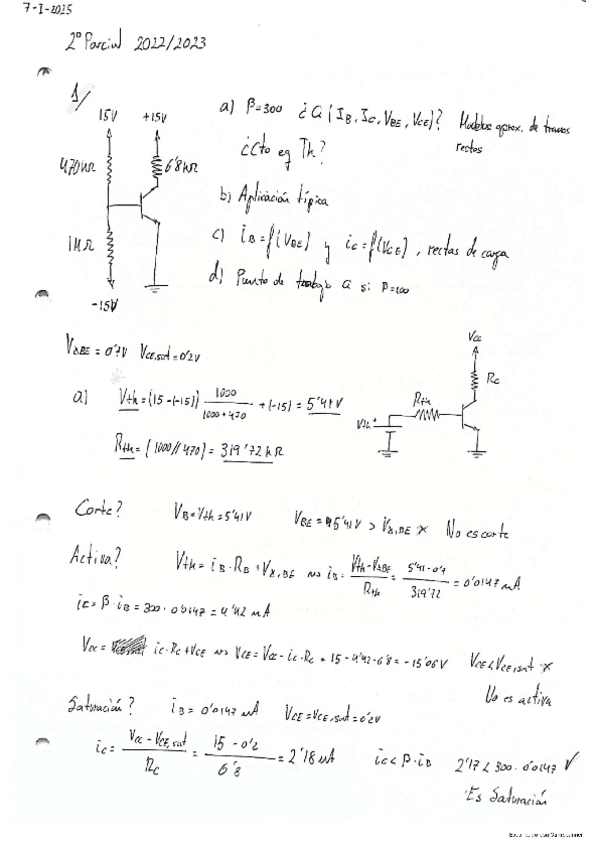 7-1-2025
2º Parcial 2022/2023
1/
15V +15V
470kΩ 6'8kΩ
1MΩ
-15V
a) β=300 ¿Q(IB, IC, VBE, VCE)? Modelos aprox. de tramos
rectos
¿Cto eq Th?
b) Aplicación típica
c) iB=f(VBE) y iC=f(VCE), rectas de carga
d) Punto de trabajo Q si β=100
VγBE = 0'7V VCE,sat=0'2V
a) Vth=(15-(-15)) 1000/1000+470 +(-15) = 5'41V
Rth=(1000//470) = 319'72kΩ
Vcc
Rc
Rth
Vth
Corte? VB=Vth=5'41V VBE = 5'41V > Vγ,BE × No es corte
Activa? Vth = iB·RB+Vγ,BE iB = Vth-VγBE/Rth = 5'41-0'7/319'72 = 0'0147 mA
iC=β·iB=300·0'0147=4'42 mA
Vcc = iC·RC+VCE VCE=Vcc-iC·RC = 15-4'42·6'8=-15'06V VCE<VCE,sat ×
No es activa
Saturación? iB=0'0147 mA VCE=VCE,sat=0'2V
iC = Vcc-VCE,sat/RC = 15-0'2/6'8 = 2'18mA iC<β·iB 2'17<300·0'0147 √
Es Saturación